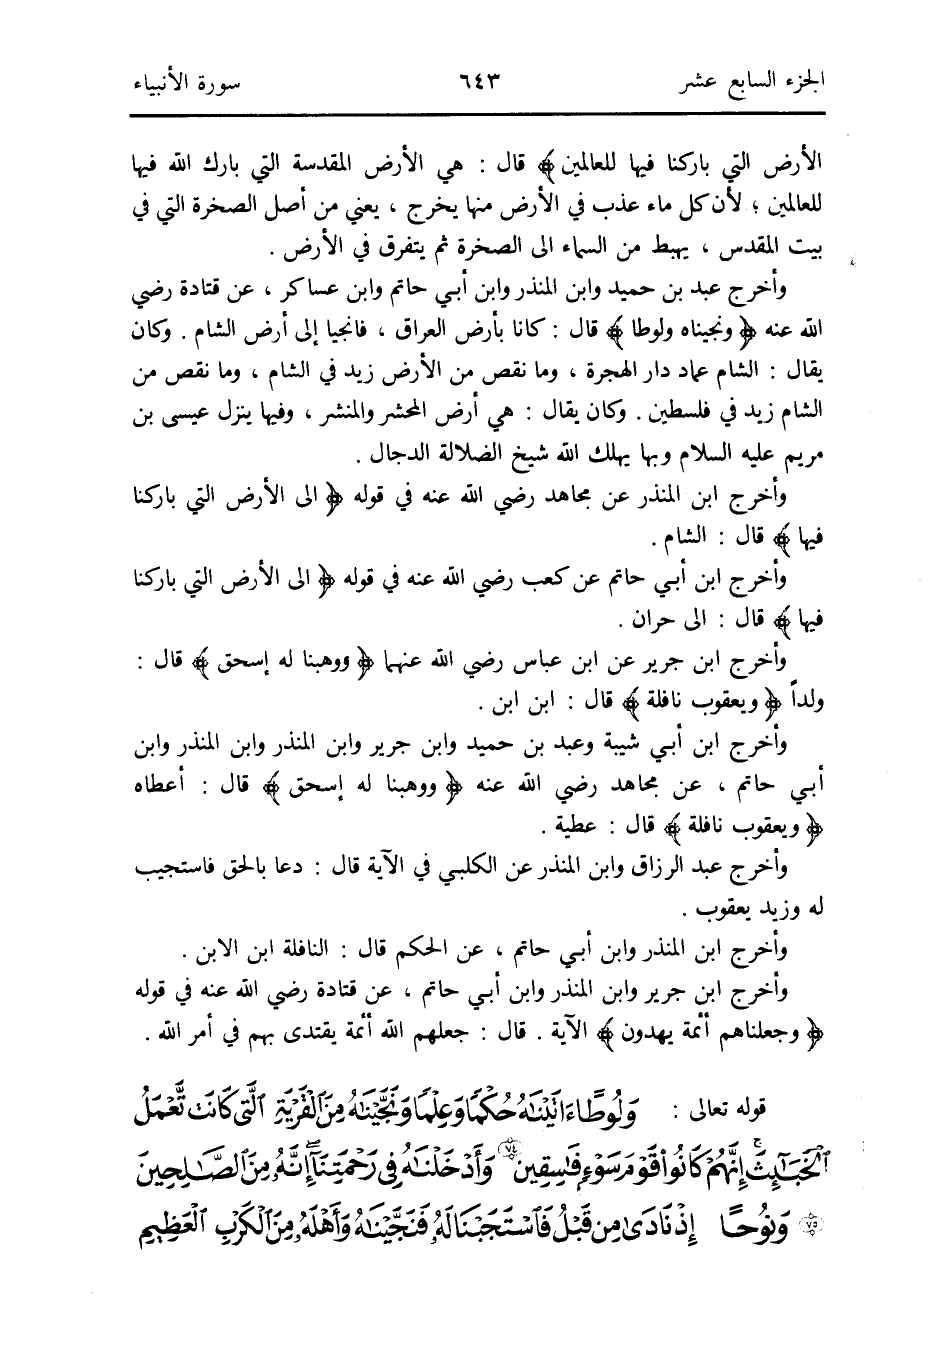 الجزء السابع عشر ٦٤٣ سورة الأنبياء
الأرض التي باركنا فيها للعالمين ﴾ قال : هي الأرض المقدسة التي بارك الله فيها
للعالمين ؛ لأن كل ماء عذب في الأرض منها يخرج ، يعني من أصل الصخرة التي في
بيت المقدس ، يهبط من السماء الى الصخرة ثم يتفرق في الأرض .
وأخرج عبد بن حميد وابن المنذر وابن أبي حاتم وابن عساكر ، عن قتادة رضي
الله عنه ﴿ ونجيناه ولوطا ﴾ قال : كانا بأرض العراق ، فانجيا إلى أرض الشام . وكان
يقال : الشام عماد دار الهجرة ، وما نقص من الأرض زيد في الشام ، وما نقص من
الشام زيد في فلسطين . وكان يقال : هي أرض المحشر والمنشر ، وفيها ينزل عيسى بن
مريم عليه السلام وبها يهلك الله شيخ الضلالة الدجال .
وأخرج ابن المنذر عن مجاهد رضي الله عنه في قوله ﴿ الى الأرض التي باركنا
فيها ﴾ قال : الشام .
وأخرج ابن أبي حاتم عن كعب رضي الله عنه في قوله ﴿ الى الأرض التي باركنا
فيها ﴾ قال : الى حران .
وأخرج ابن جرير عن ابن عباس رضي الله عنهما ﴿ ووهبنا له إسحق ﴾ قال :
ولداً ﴿ ويعقوب نافلة ﴾ قال : ابن ابن .
وأخرج ابن أبي شيبة وعبد بن حميد وابن جرير وابن المنذر وابن المنذر وابن
أبي حاتم ، عن مجاهد رضي الله عنه ﴿ ووهبنا له إسحق ﴾ قال : أعطاه
﴿ ويعقوب نافلة ﴾ قال : عطية .
وأخرج عبد الرزاق وابن المنذر عن الكلبي في الآية قال : دعا بالحق فاستجيب
له وزيد يعقوب .
وأخرج ابن المنذر وابن أبي حاتم ، عن الحكم قال : النافلة ابن الابن .
وأخرج ابن جرير وابن المنذر وابن أبي حاتم ، عن قتادة رضي الله عنه في قوله
﴿ وجعلناهم أئمة يهدون ﴾ الآية . قال : جعلهم الله أئمة يقتدى بهم في أمر الله .
قوله تعالى : وَلُوطًا ءَاتَيْنَٰهُ حُكْمًا وَعِلْمًا وَنَجَّيْنَٰهُ مِنَ ٱلْقَرْيَةِ ٱلَّتِى كَانَت تَّعْمَلُ
ٱلْخَبَٰٓئِثَ ۗ إِنَّهُمْ كَانُوا۟ قَوْمَ سَوْءٍ فَٰسِقِينَ ﴿٧٤﴾ وَأَدْخَلْنَٰهُ فِى رَحْمَتِنَآ ۖ إِنَّهُۥ مِنَ ٱلصَّٰلِحِينَ
﴿٧٥﴾ وَنُوحًا إِذْ نَادَىٰ مِن قَبْلُ فَٱسْتَجَبْنَا لَهُۥ فَنَجَّيْنَٰهُ وَأَهْلَهُۥ مِنَ ٱلْكَرْبِ ٱلْعَظِيمِ